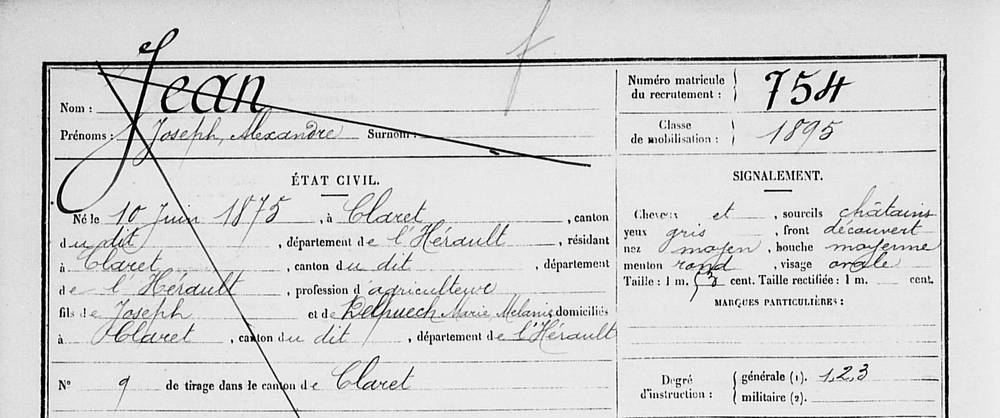 Nom : Jean
Prénoms : Joseph, Alexandre Surnom :
Numéro matricule du recrutement : 754
Classe de mobilisation : 1895
ÉTAT CIVIL.
Né le 10 Juin 1875, à Claret, canton
du dit, département de l'Hérault, résidant
à Claret, canton du dit, département
de l'Hérault, profession d'agriculteur
fils de Joseph et de Delpuech Marie Melanie domiciliés
à Claret, canton du dit, département de l'Hérault
N° 9 de tirage dans le canton de Claret
SIGNALEMENT.
Cheveux et, sourcils châtains
yeux gris, front découvert
nez moyen, bouche moyenne
menton rond, visage ovale
Taille : 1 m. cent. Taille rectifiée : 1 m. cent.
MARQUES PARTICULIÈRES :
Degré d'instruction : générale (1). 1,2,3
militaire (2).